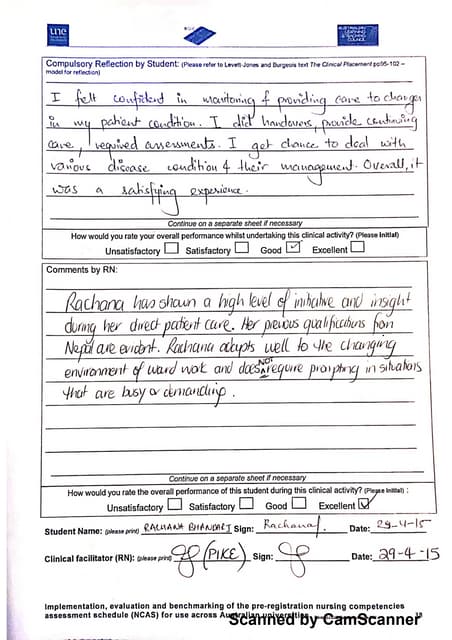 une
AUSTRALIAN LEARNING & TEACHING COUNCIL
Compulsory Reflection by Student: (Please refer to Levett-Jones and Burgeois text The Clinical Placement pp95-102 –
model for reflection)
I felt confident in monitoring & providing care to changes
in my patient condition. I did handovers, provide continuing
care, required assessments. I get chance to deal with
various disease condition & their management. Overall, it
was a satisfying experience.
Continue on a separate sheet if necessary
How would you rate your overall performance whilst undertaking this clinical activity? (Please Initial)
Unsatisfactory Satisfactory Good ✓ Excellent
Comments by RN:
Rachana has shown a high level of initiative and insight
during her direct patient care. Her previous qualifications from
Nepal are evident. Rachana adapts well to the changing
environment of ward work and does NOT require prompting in situations
that are busy or demanding.
Continue on a separate sheet if necessary
How would you rate the overall performance of this student during this clinical activity? (Please Initial) :
Unsatisfactory Satisfactory Good Excellent ✓
Student Name: (please print) RACHANA BHANDARI Sign: Rachana Date: 29-4-15
Clinical facilitator (RN): (please print) (PIKE) Sign: Date: 29-4-15
Implementation, evaluation and benchmarking of the pre-registration nursing competencies
assessment schedule (NCAS) for use across Australian universities
Scanned by CamScanner